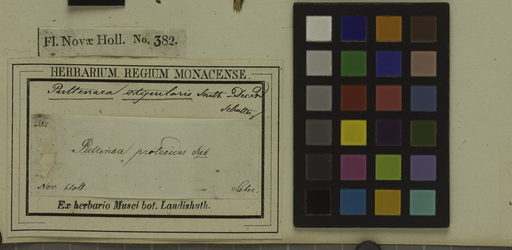 Fl. Novæ Holl. No. 382.
HERBARIUM REGIUM MONACENSE.
Pultenaea stipularis Smith
382
Pultenæa proteoides Sieb
Nov. Holl. Sieber.
Ex herbario Musei bot. Landishuth.